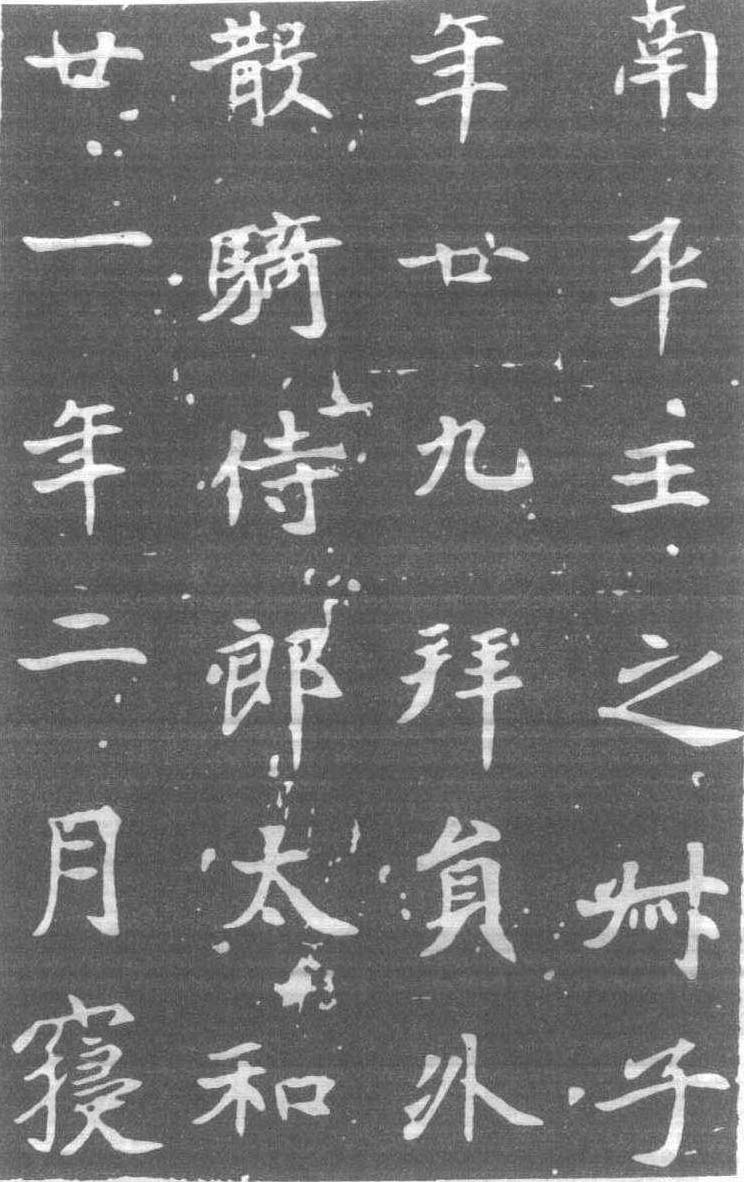 南平王之叔子
年廿九拜員外
散騎侍郎太和
廿一年二月寑